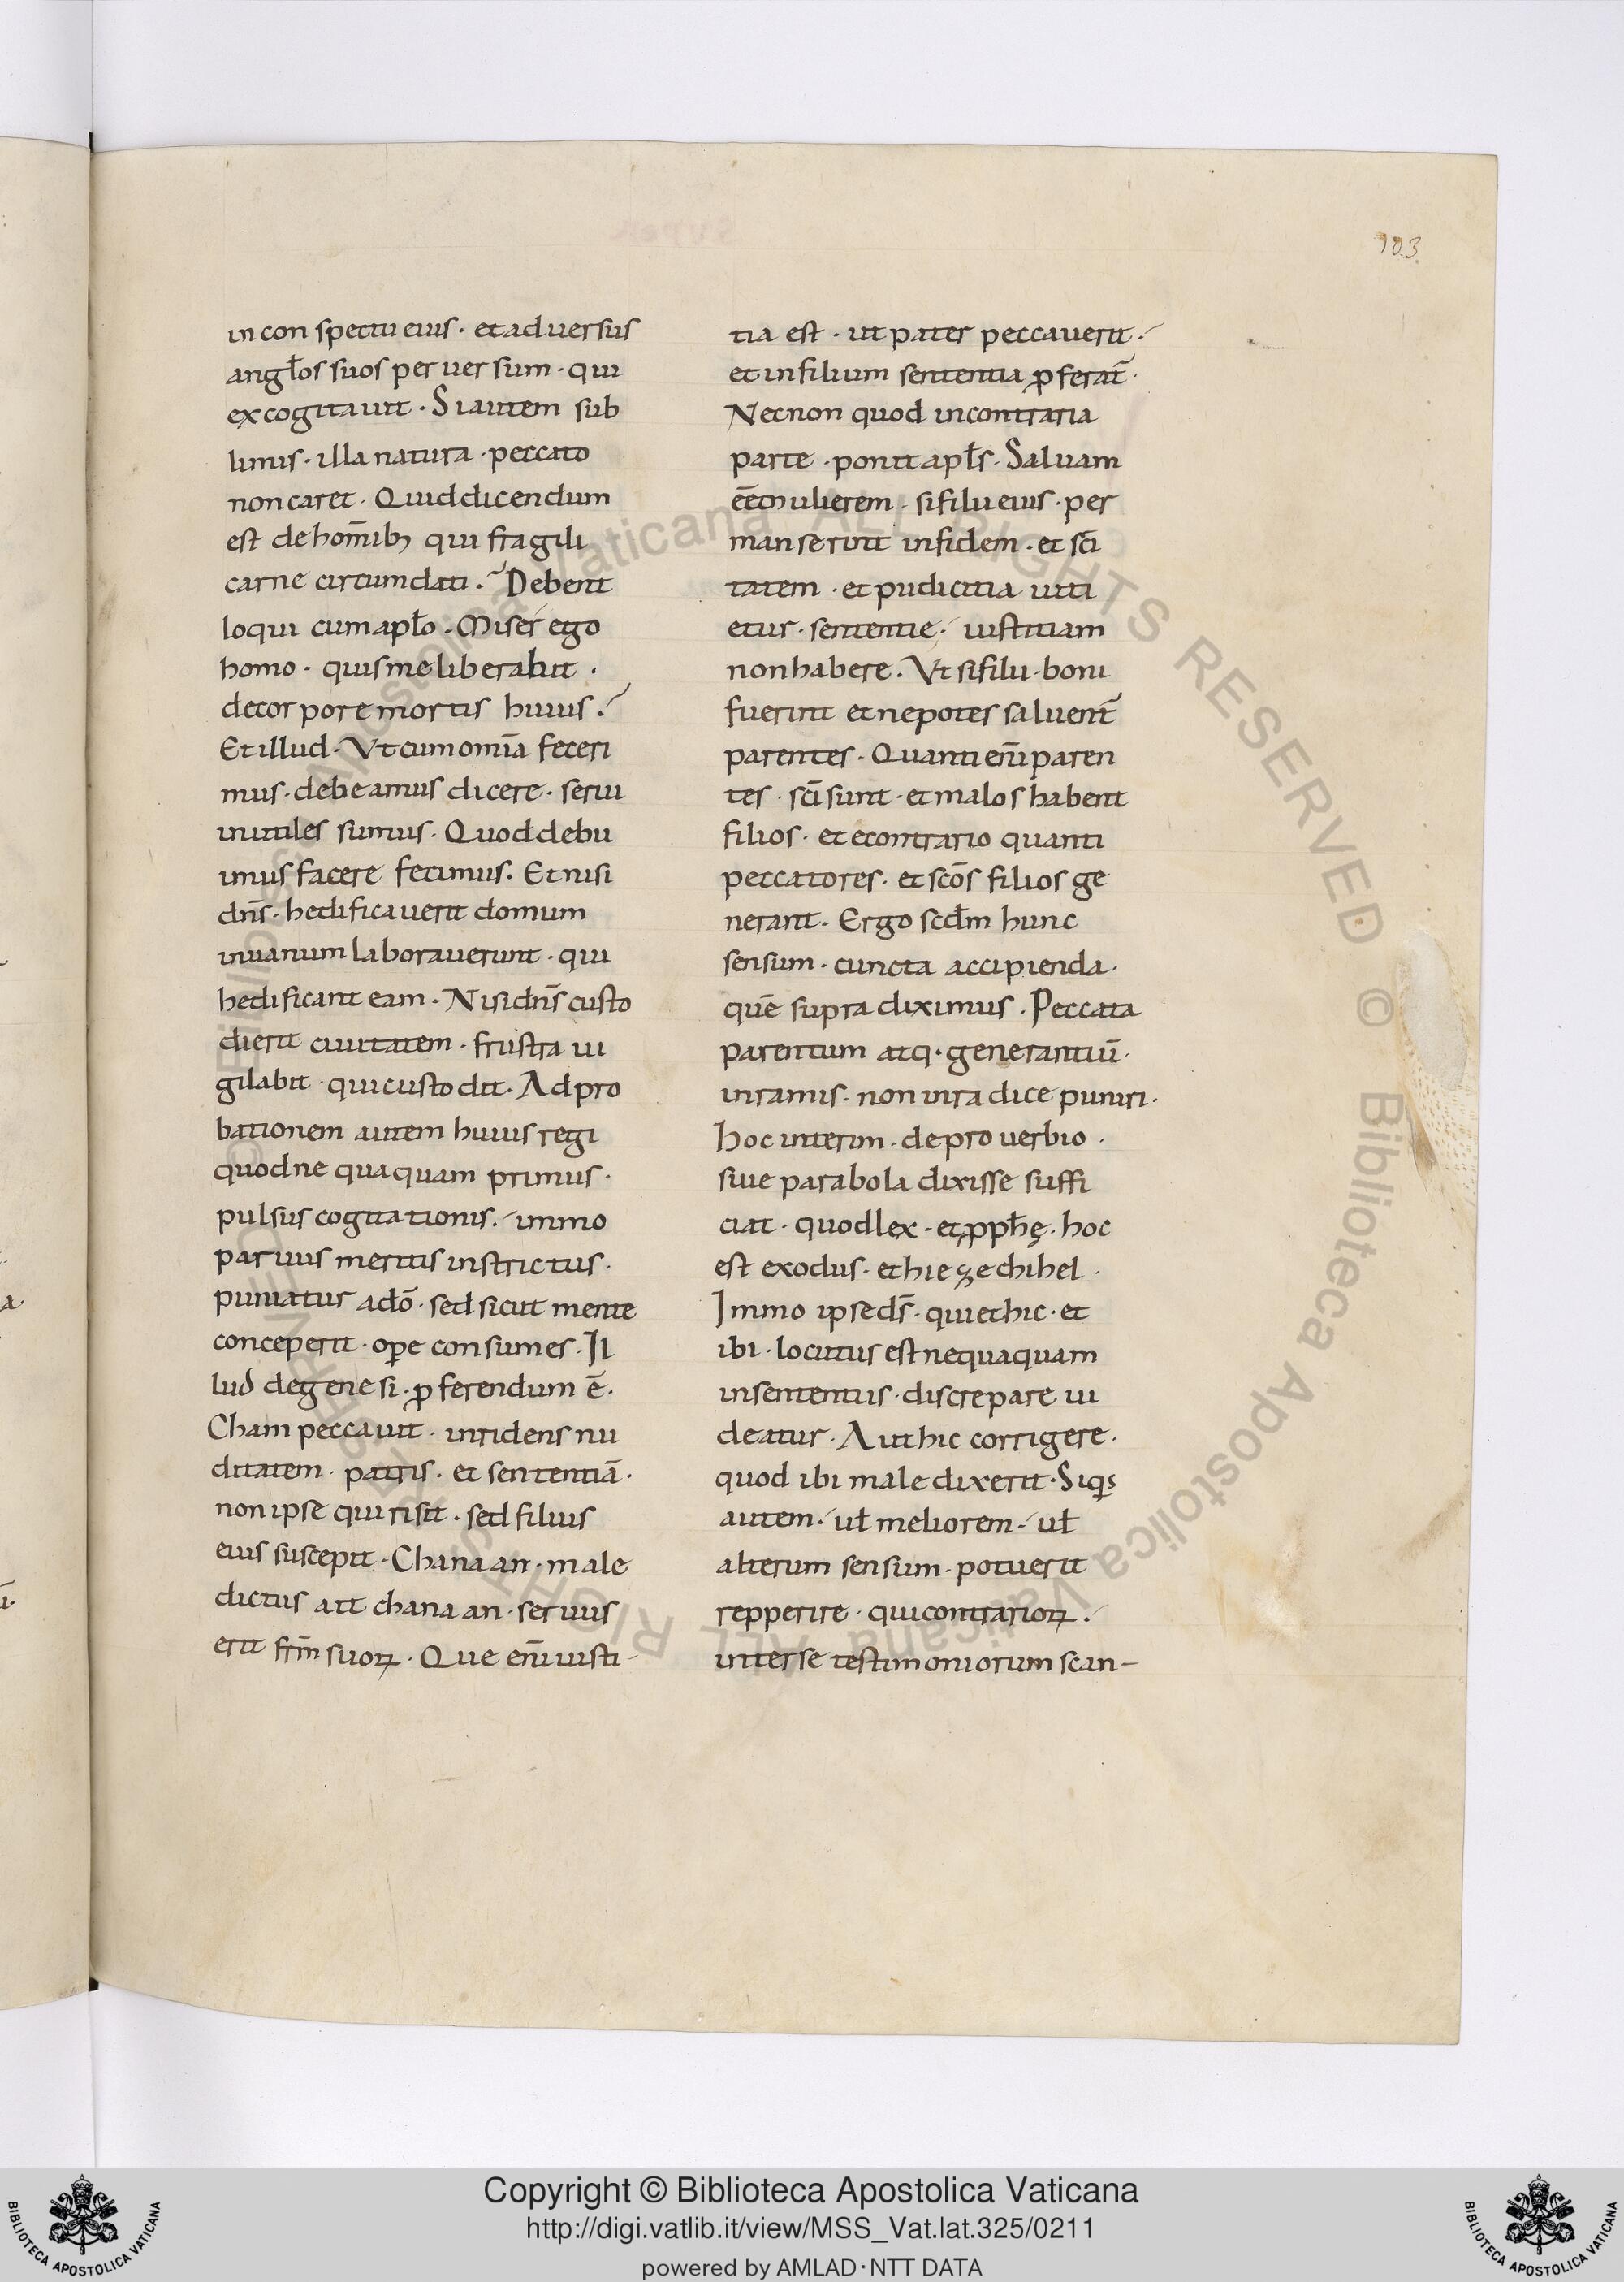 103
in conspectu eius · et adversus
angl̄os suos perversum · qui
excogitavit · Si autem sub
limis · illa natura · peccato
non caret · Quid dicendum
est de hom̄ib; qui fragili
carne circumdati . Debent
loqui cum apl̄o . Miser ego
homo · quis me liberabit ·
decorpore mortis huius .
Et illud · Ut cum om̄ia feceri
mus · debeamus dicere · servi
inutiles sumus · Quod debu
imus facere fecimus . Et nisi
dn̄s · hedificaverit domum
invanum laboraverunt · qui
hedificant eam · Nisi dn̄s custo
dierit civitatem · frustra vi
gilabit · qui custodit · Ad pro
bationem autem huius regi
quod ne quaquam primus ·
pulsus cogitationis . immo
parvus meritis instrictus ·
puniatur adō · sed sicut mente
conceperit · ope consumes · Il
lud degenesi · ꝓferendum ē ·
Cham peccavit · inridens nu
ditatem · patris · et sententiā ·
non ipse qui risit · sed filius
eius suscepit · Chanaan · male
dictus ait chanaan · servus
erit fr̄m suoꝝ · Que eni̅ iusti
tia est · ut pater peccaverit ·
et in filium sententia ꝓferat̄ ·
Necnon quod incontraria
parte · ponit apl̄s · Salvam
eē mulierem · si filii eius · per
manserint infidem · et sc̄i
tatem · et pudicitia uiti
etur · sententie · iustitiam
non habere . Ut si filii · boni
fuerint et nepotes salvent̄
parentes · Quanti eni̅ paren
tes · sc̄i sunt · et malos habent
filios · et econtrario quanti
peccatores · et sc̄os filios ge
nerant · Ergo scd̄m hunc
sensum · cuncta accipienda ·
quē supra diximus . Peccata
parentum atq· generantiū ·
inramis · non inradice puniri ·
hoc interim · de proverbio ·
sive parabola dixisse suffi
ciat · quod lex · et ꝓph̄ę · hoc
est exodus · et hiezechihel ·
Immo ipse ds̄ · qui et hic · et
ibi · locutus est nequaquam
insententiis · discrepare vi
deatur · Aut hic corrigere ·
quod ibi male dixerit · Siqs
autem · ul̄ meliorem · ul̄
alterum sensum · potuerit
repperire · qui contrarioꝝ .
inter se testimoniorum scan-
Copyright © Biblioteca Apostolica Vaticana
http://digi.vatlib.it/view/MSS_Vat.lat.325/0211
powered by AMLAD·NTT DATA
BIBLIOTECA APOSTOLICA VATICANA
BIBLIOTECA APOSTOLICA VATICANA